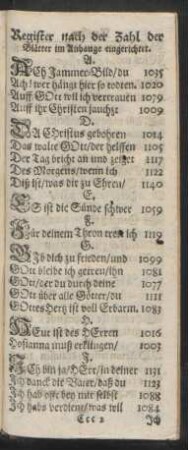 Register nach der Zahl der
Blätter im Anhange eingerichtet.
A.
ACh Jammer-Bild/du 1035
Ach! wer hängt hier so todten. 1020
Auff GOtt will ich vertrauen 1079
Auff ihr Christen jauchzt 1009
D.
DA Christus gebohren 1014
Das walte GOtt/der helffen 1105
Der Tag bricht an und zeiget 1117
Des Morgens/wenn ich 1122
Diß ist/was dir zu Ehren/ 1140
E.
ES ist die Sünde schwer 1059
F.
Für deinem Thron tret ich 1119
G.
GIb dich zu frieden/und 1099
GOtt bleibe ich getreu/ihn 1081
GOtt/der du durch deine 1077
GOtt über alle Götter/du 1111
GOttes Hertz ist voll Erbarm. 1083
H.
HEut ist des HErren 1016
Hosianna muß erklingen/ 1003
J.
JCh bin ja/HErr/in deiner 1131
Ich danck dir Vater/daß du 1123
Ich hab offt bey mir selbst 1088
Ich habs verdient/was will 1084
Ccc 2 Ich